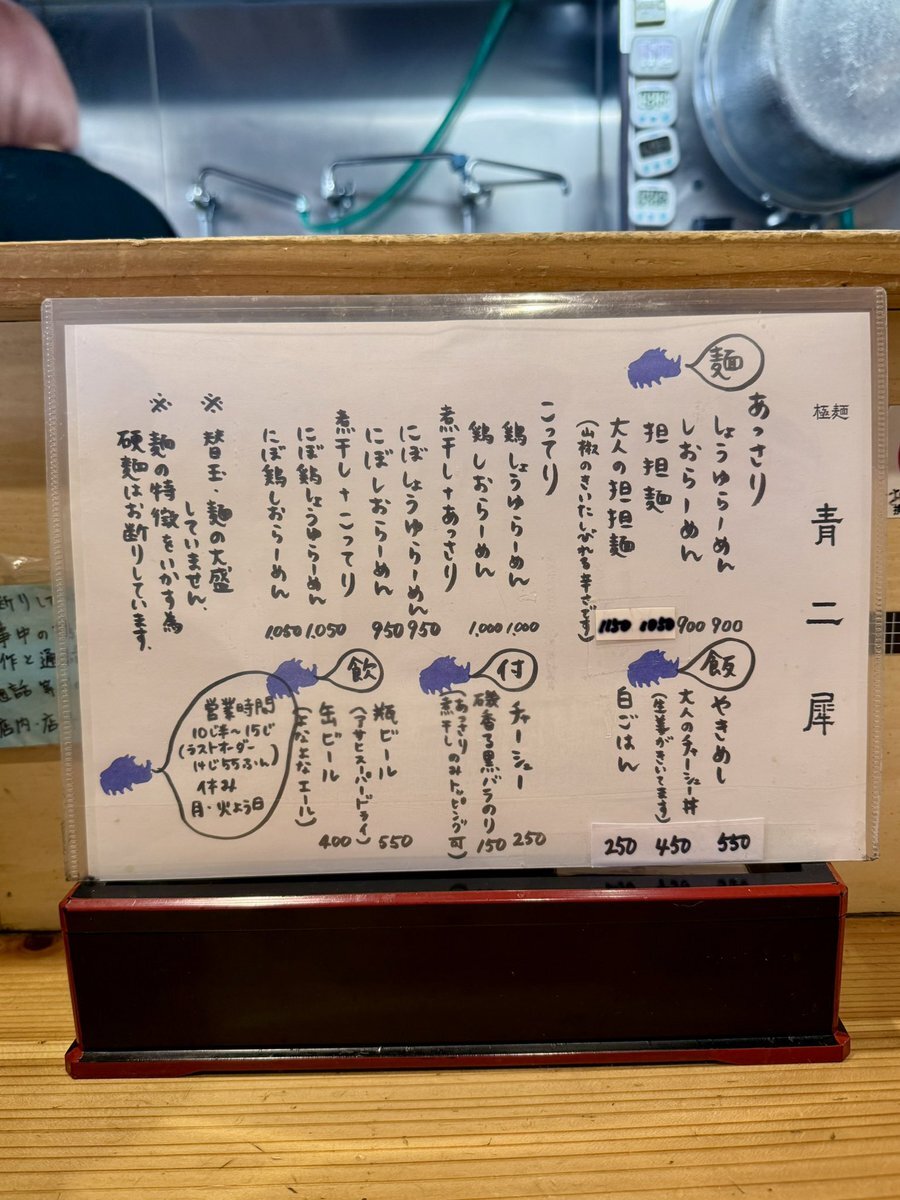 極麺 青二犀
麺
あっさり
しょうゆらーめん 900
しおらーめん 900
担担麺 1050
大人の担担麺 1150
(山椒のきいたしびれる辛さです)
こってり
鶏しょうゆらーめん 1,000
鶏しおらーめん 1,000
煮干し+あっさり
にぼしょうゆらーめん 950
にぼしおらーめん 950
煮干し+こってり
にぼ鶏しょうゆらーめん 1,050
にぼ鶏しおらーめん 1050
※ 替玉・麺の大盛
していません。
※ 麺の特徴をいかす為
硬麺はお断りしています。
飯
やきめし 550
大人のチャーシュー丼 450
(生姜がきいてます)
白ごはん 250
付
チャーシュー 250
磯香る黒バラのり 150
(あっさりのみトッピング可
煮干し)
飲
瓶ビール 550
(アサヒスーパードライ)
缶ビール 400
(よなよなエール)
営業時間
10じ半~15じ
(ラストオーダー
14じ55ふん)
休み
月・火よう日
断りして
事中の
作と通
通話等
店内・店